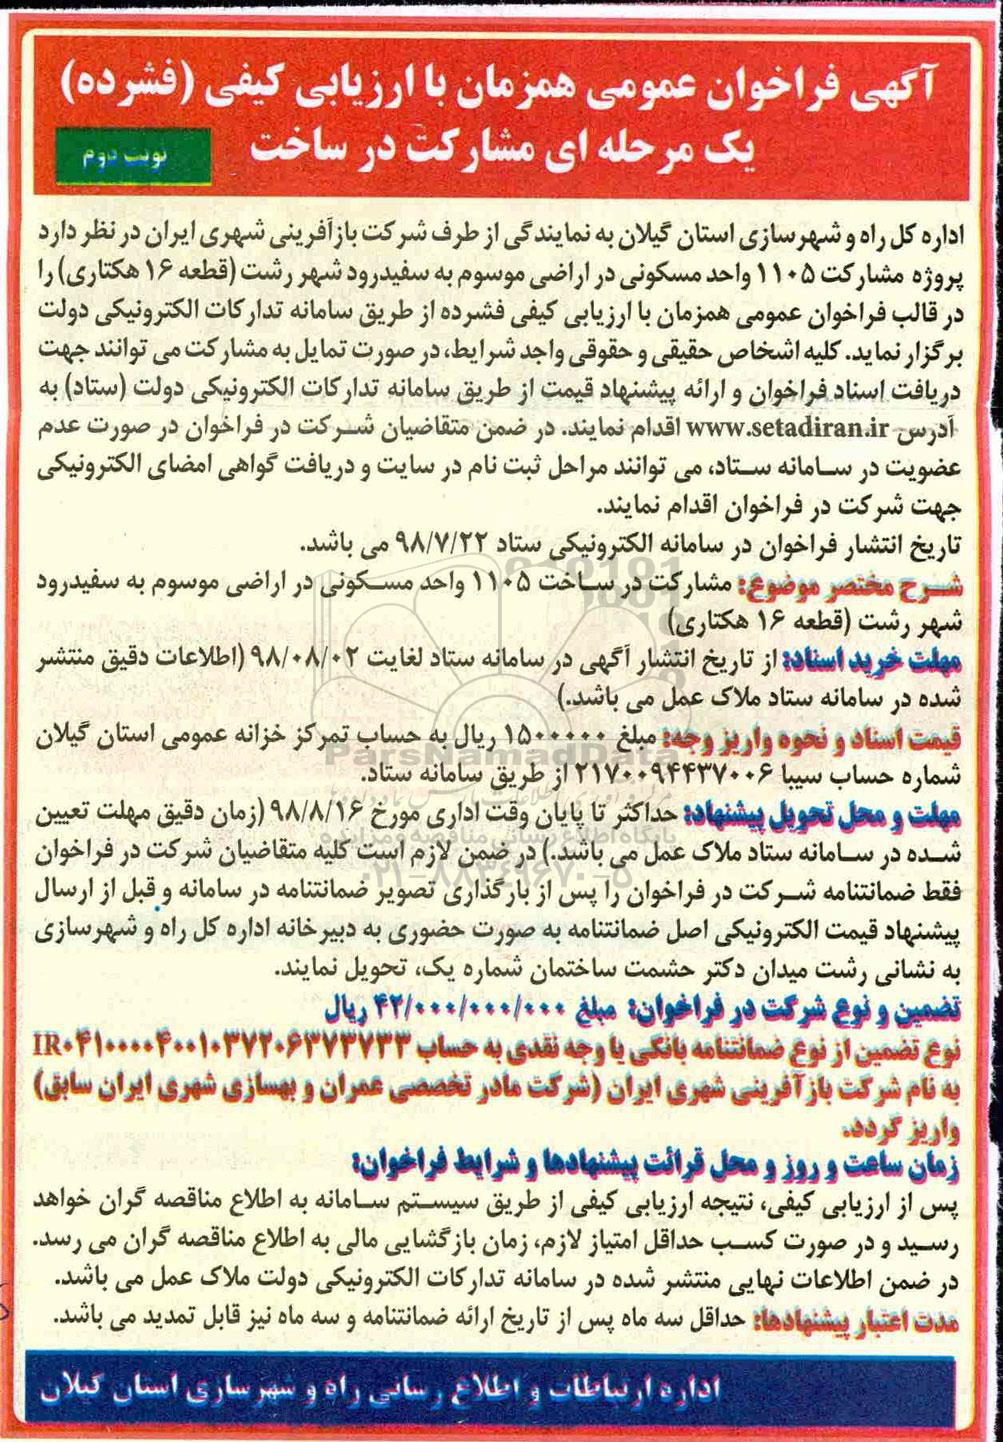 آگهی فراخوان عمومی همزمان با ارزیابی کیفی (فشرده)
یک مرحله ای مشارکت در ساخت
نوبت دوم
اداره کل راه و شهرسازی استان گیلان به نمایندگی از طرف شرکت بازآفرینی شهری ایران در نظر دارد
پروژه مشارکت ۱۱۰۵ واحد مسکونی در اراضی موسوم به سفیدرود شهر رشت (قطعه ۱۶ هکتاری) را
در قالب فراخوان عمومی همزمان با ارزیابی کیفی فشرده از طریق سامانه تدارکات الکترونیکی دولت
برگزار نماید. کلیه اشخاص حقیقی و حقوقی واجد شرایط، در صورت تمایل به مشارکت می توانند جهت
دریافت اسناد فراخوان و ارائه پیشنهاد قیمت از طریق سامانه تدارکات الکترونیکی دولت (ستاد) به
آدرس www.setadiran.ir اقدام نمایند. در ضمن متقاضیان شرکت در فراخوان در صورت عدم
عضویت در سامانه ستاد، می توانند مراحل ثبت نام در سایت و دریافت گواهی امضای الکترونیکی
جهت شرکت در فراخوان اقدام نمایند.
تاریخ انتشار فراخوان در سامانه الکترونیکی ستاد ۹۸/۷/۲۲ می باشد.
شرح مختصر موضوع: مشارکت در ساخت ۱۱۰۵ واحد مسکونی در اراضی موسوم به سفیدرود
شهر رشت (قطعه ۱۶ هکتاری)
مهلت خرید اسناد: از تاریخ انتشار آگهی در سامانه ستاد لغایت ۹۸/۰۸/۰۲ (اطلاعات دقیق منتشر
شده در سامانه ستاد ملاک عمل می باشد.)
قیمت اسناد و نحوه واریز وجه: مبلغ ۱۵۰۰۰۰۰ ریال به حساب تمرکز خزانه عمومی استان گیلان
شماره حساب سیبا ۲۱۷۰۰۹۴۴۳۷۰۰۶ از طریق سامانه ستاد.
ParsNamadData
مهلت و محل تحویل پیشنهاد: حداکثر تا پایان وقت اداری مورخ ۹۸/۸/۱۶ (زمان دقیق مهلت تعیین
پایگاه اطلاع رسانی مناقصه و مزایده
شده در سامانه ستاد ملاک عمل می باشد.) در ضمن لازم است کلیه متقاضیان شرکت در فراخوان
۰۲۱-۸۸۳۴۹۶۷۰-۵
فقط ضمانتنامه شرکت در فراخوان را پس از بارگذاری تصویر ضمانتنامه در سامانه و قبل از ارسال
پیشنهاد قیمت الکترونیکی اصل ضمانتنامه به صورت حضوری به دبیرخانه اداره کل راه و شهرسازی
به نشانی رشت میدان دکتر حشمت ساختمان شماره یک، تحویل نمایند.
تضمین و نوع شرکت در فراخوان: مبلغ ۴۲/۰۰۰/۰۰۰/۰۰۰ ریال
نوع تضمین از نوع ضمانتنامه بانکی یا وجه نقدی به حساب
به نام شرکت بازآفرینی شهری ایران (شرکت مادر تخصصی عمران و بهسازی شهری ایران سابق)
واریز گردد.
زمان ساعت و روز و محل قرائت پیشنهادها و شرایط فراخوان:
پس از ارزیابی کیفی، نتیجه ارزیابی کیفی از طریق سیستم سامانه به اطلاع مناقصه گران خواهد
رسید و در صورت کسب حداقل امتیاز لازم، زمان بازگشایی مالی به اطلاع مناقصه گران می رسد.
در ضمن اطلاعات نهایی منتشر شده در سامانه تدارکات الکترونیکی دولت ملاک عمل می باشد.
مدت اعتبار پیشنهادها: حداقل سه ماه پس از تاریخ ارائه ضمانتنامه و سه ماه نیز قابل تمدید می باشد.
اداره ارتباطات و اطلاع رسانی راه و شهرسازی استان گیلان